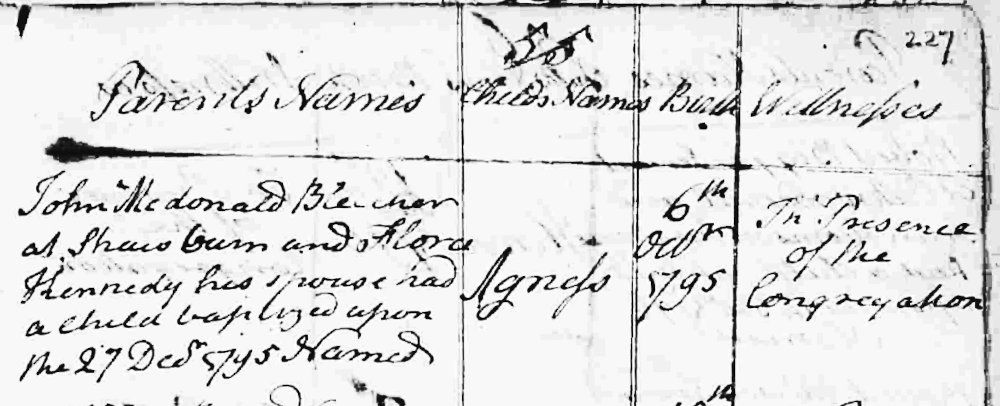 227
Parents Names Childs Names Birth Wittnesses
John Mcdonald Bleicher
at Shawburn and Flora
Kennedy his spouse had
a Child baptized upon
the 27 Decr 1795 Named
Agness
6th
Octbr
1795
In Presence
of the
Congregation